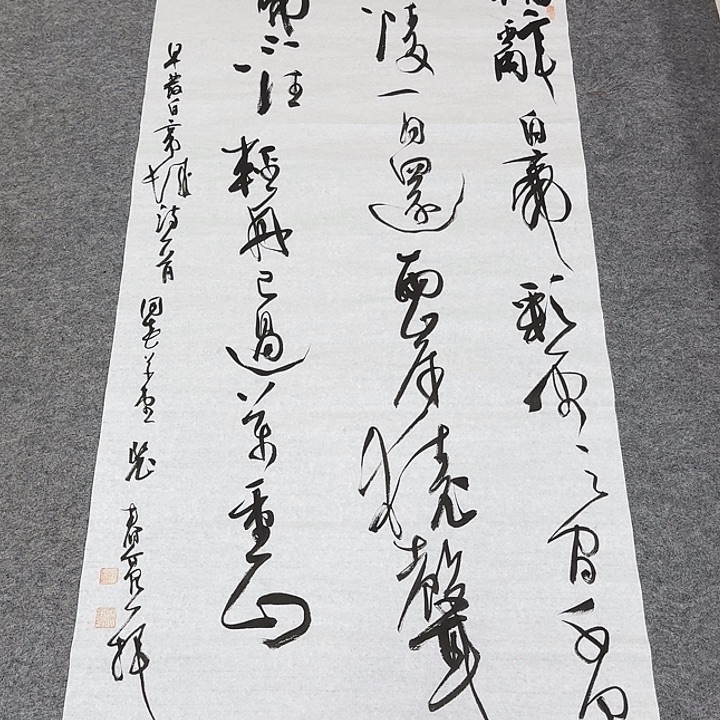 朝辭白帝彩雲之間千里
陵一日還兩岸猿聲
啼不住輕舟已過萬重山
早發白帝城詩一首